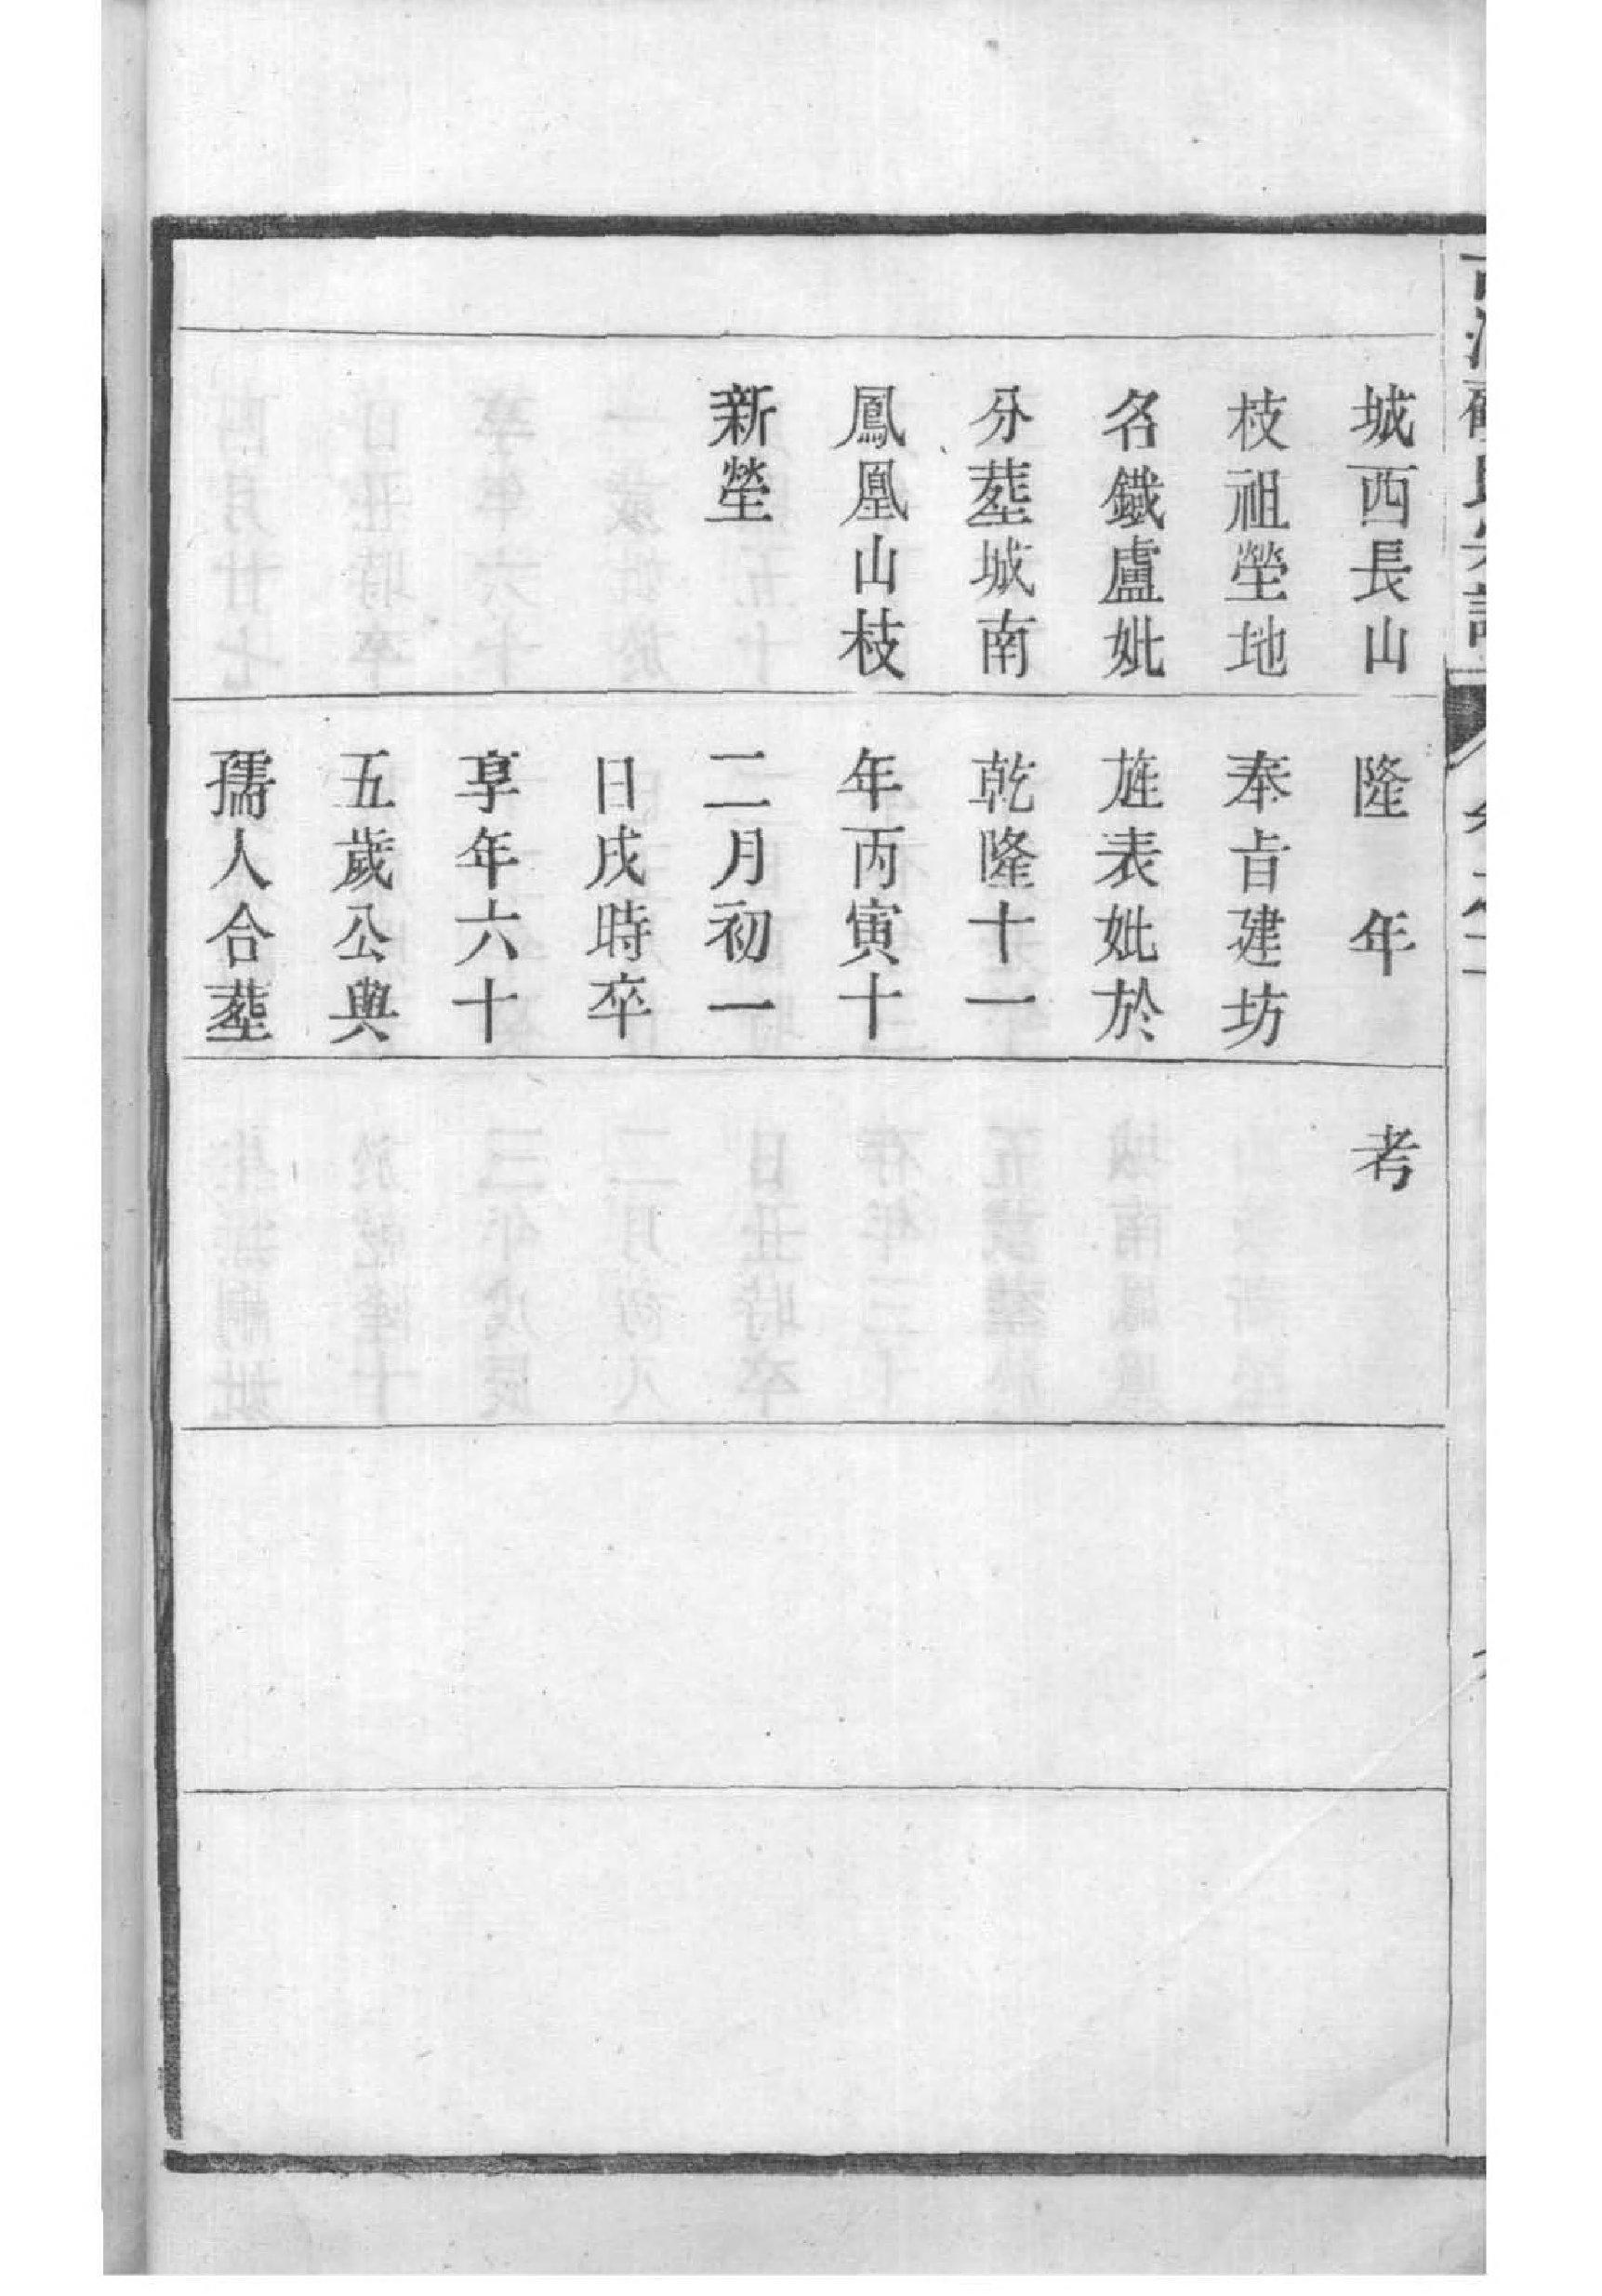 城西長山
枝祖塋地
名鐵盧妣
分塟城南
鳳凰山枝
新塋
隆　年
奉旨建坊
旌表妣於
乾隆十一
年丙寅十
二月初一
日戌時卒
享年六十
五歲公與
孺人合塟
考